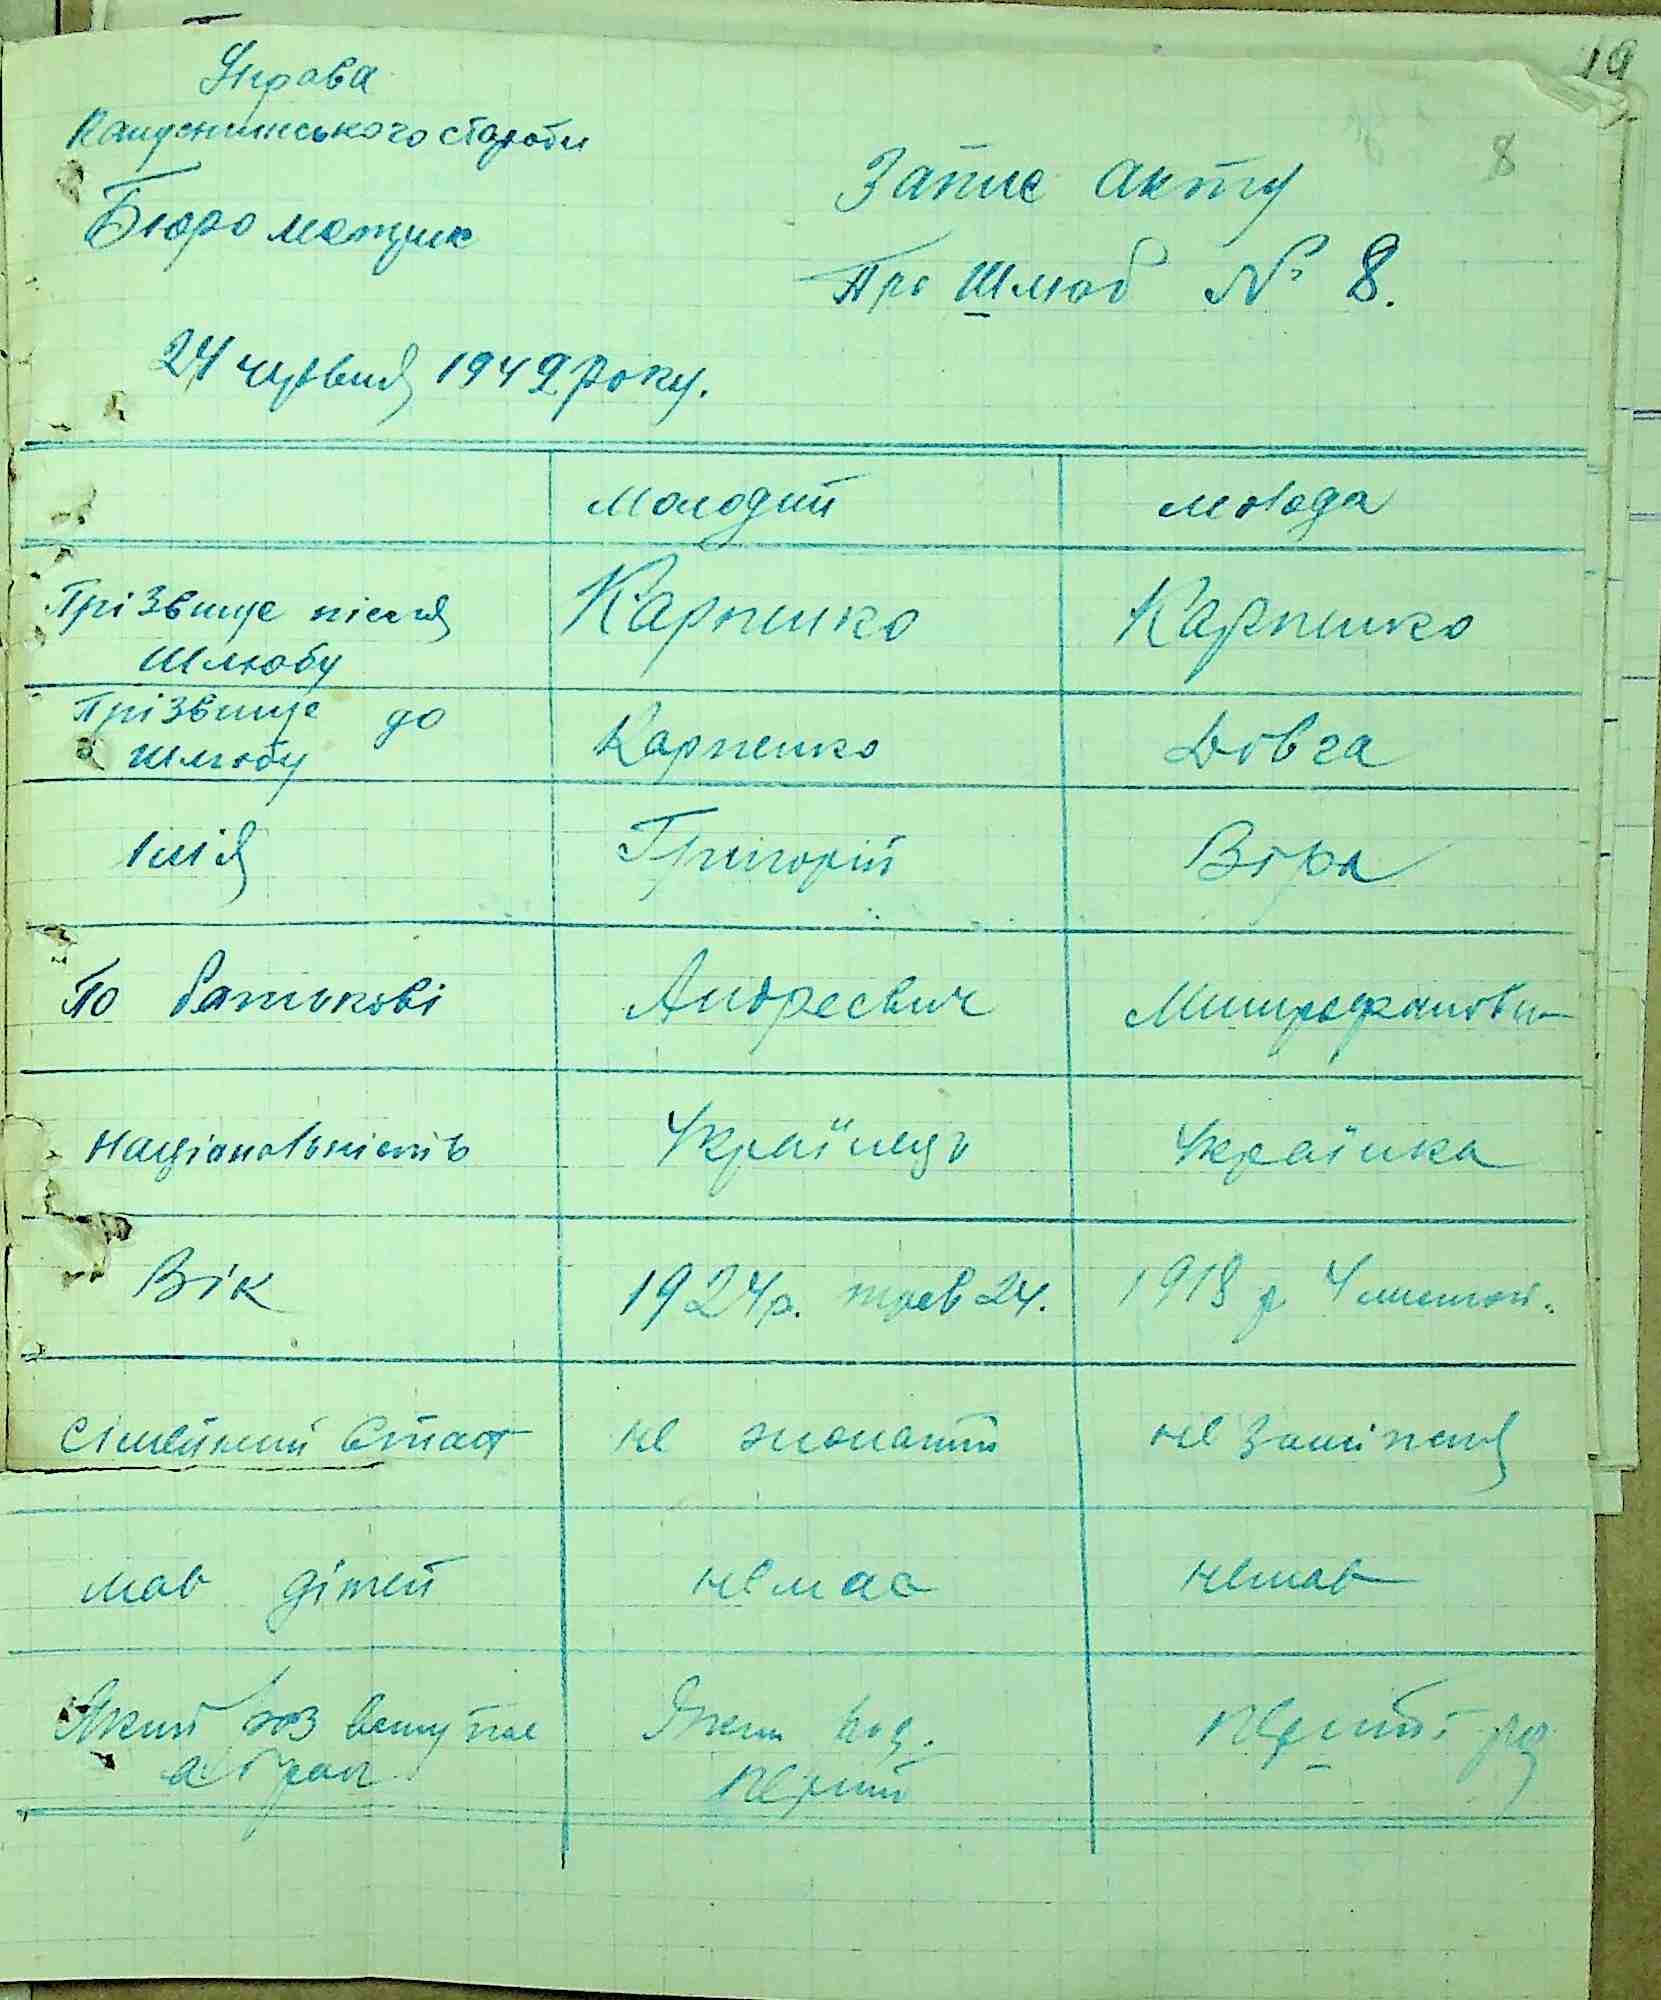 19
8
Управа
старости
Бюро метрик
Запис акту
Про Шлюб № 8.
24 червня 1942 року.
Молодий молода
Прізвище після Карпенко Карпенко
Шлюбу
Прізвище до Карпенко Довга
Шлюбу
Імія Григорій Віра
По батькові Андреєвич
Національність Українець Українка
Вік 1924 р. трав 24. 1918 р.
Сімейний встаф не жонатий не заміжня
мав дітей немає немає
Який раз вступає Який раз. Перший раз
а шлюб Перший